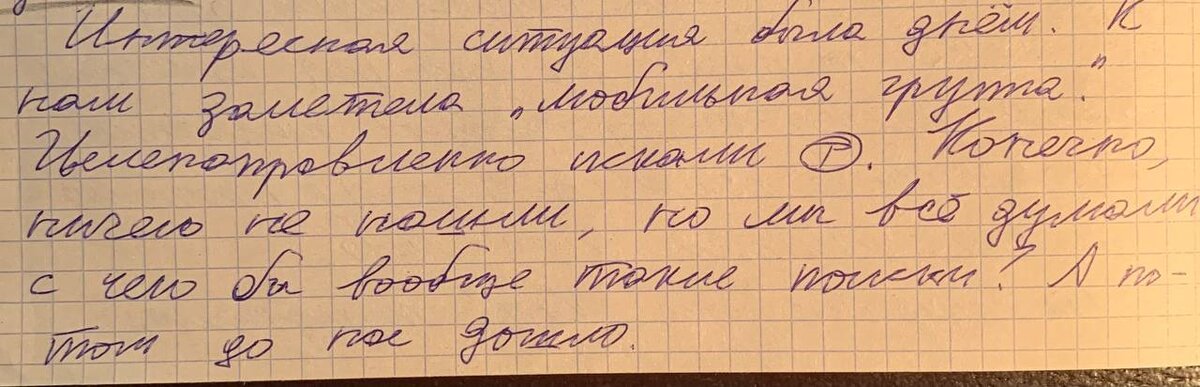 Интересная ситуация была днём. К
нам залетела „мобильная группа".
Целенаправленно искали Ⓣ. Конечно,
ничего не нашли, но мы всё думали
с чего бы вообще такие поиски? А по-
том до нас дошло.